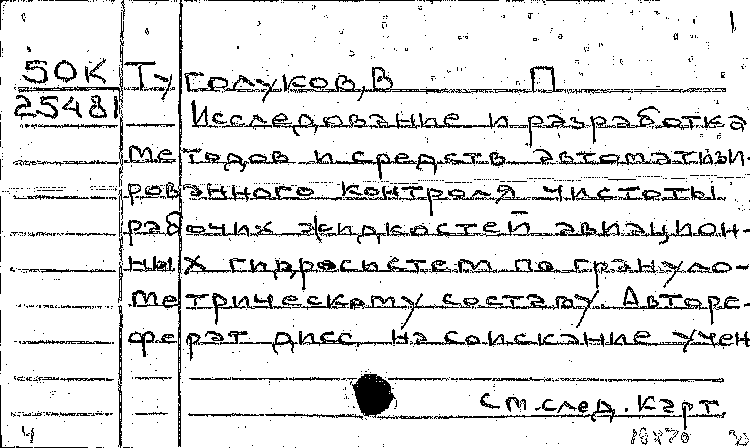 1
50К Туголуков, В П
25481 Исследование и разработка
методов и средств автоматизи-
рованного контроля чистоты
рабочих жидкостей авиацион-
ных гидросистем по грануло-
метрическому составу. Авторе-
ферат дисс. на соискание учен
см. след. карт.
4